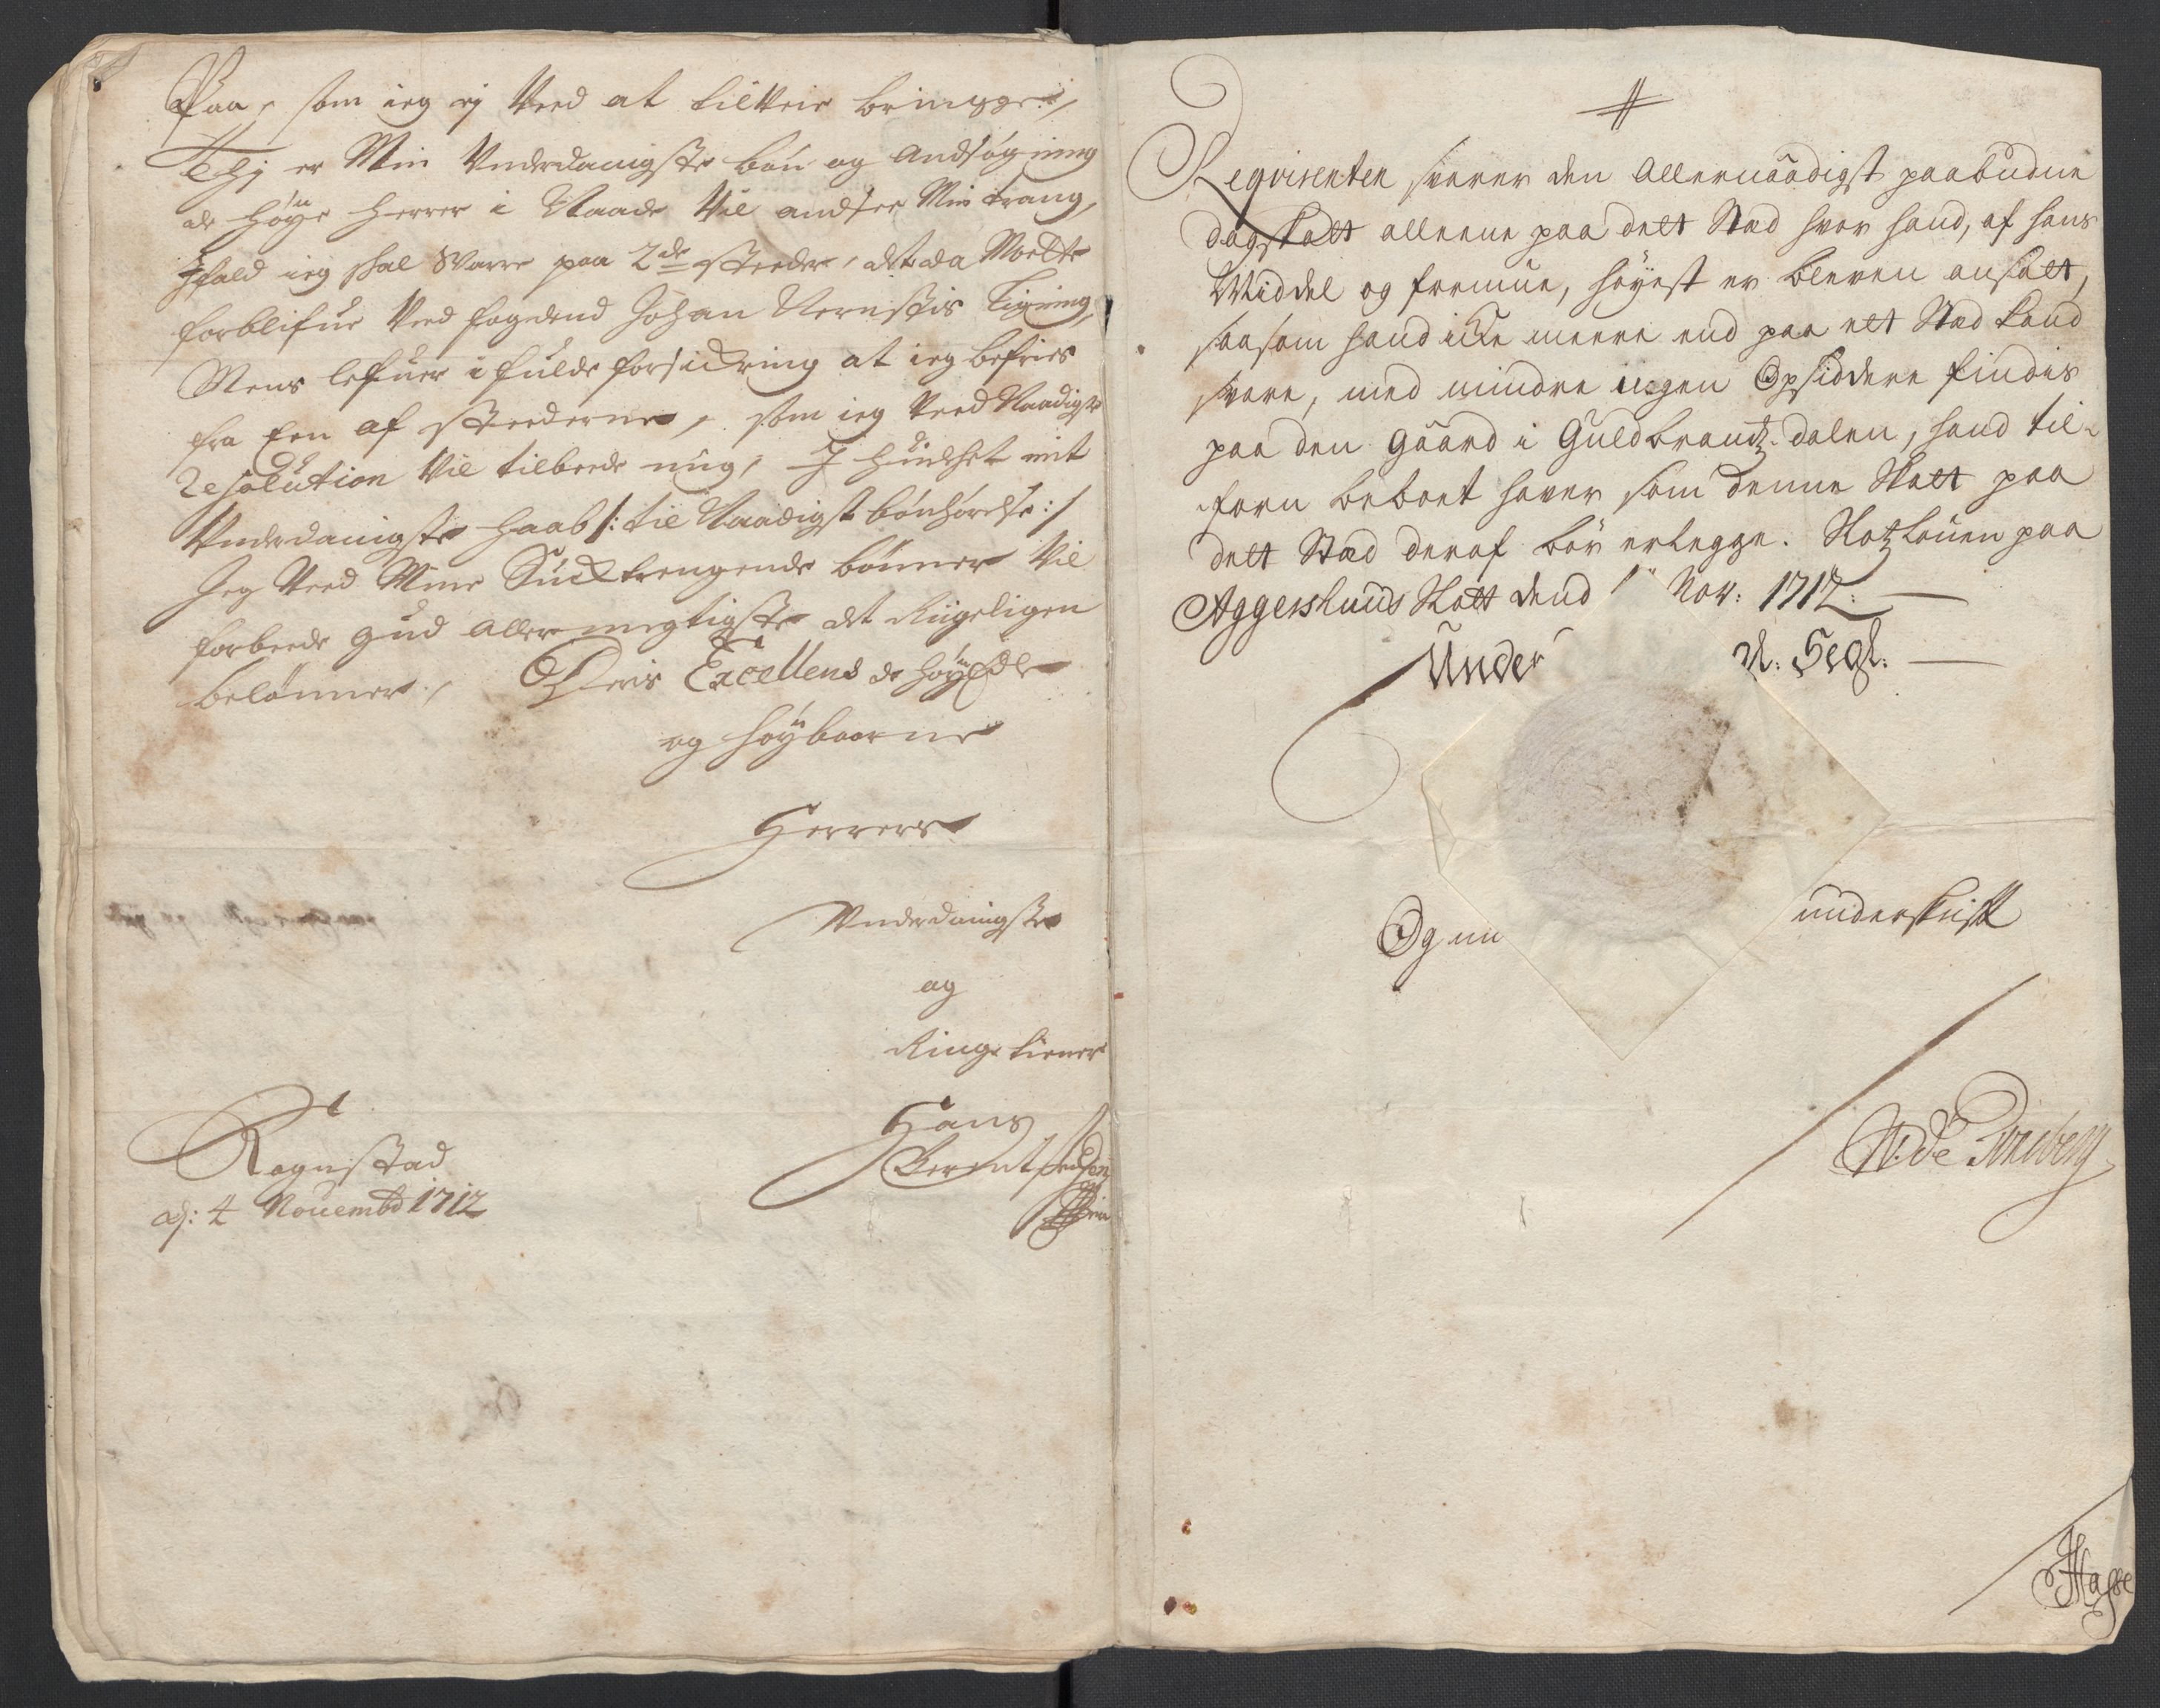 Paa, som ieg ej Veed at tilVeie bringe,
Thj er Min Underdanigste bön og Andsögning
de höÿe herrer i Naade Vil andsee Min trang,
Ifald ieg skal Svare paa 2de steeder, det da Motte
forblifue Ved fogdend Johan Nernstis Ligning,
Mens lefuer i fuld forsickring at ieg befries
fra Een af Steederne, som ieg Veed Naadigst
Resolution Vil tilbeede mig, I huilchet mit
Underdanigste haab /: til Naadigst bönhörelse :/
Jeg Veed Mine Suck trengende bönner Vil
forbeede Gud Allermegtigste det Riigeligen
belönner, Deris Excellens de höÿEdle
og höÿbaarne
Herrers
Underdanigste
og
Ringe tiener
Hans
Berentsen
Rognstad
dj: 4 Nouembd 1712
Reqvirenten svarer den Allernaadigst paabudne
dagskatt alleene paa dett Stad hvor hand, af hans
Middel og formue, höÿest er bleven ansatt,
saasom hand icke meere end paa ett Stad kand
svare, med mindre ingen Opsiddere findis
paa den Gaard i Guldbrandtzdalen, hand til-
forn beboet haver som denne Skatt paa
dett Stad deraf bör erlegge. Slotzlouen paa
Aggershuus Slott dend Nov: 1712.
Under R: Segl.
Og un underskrifft